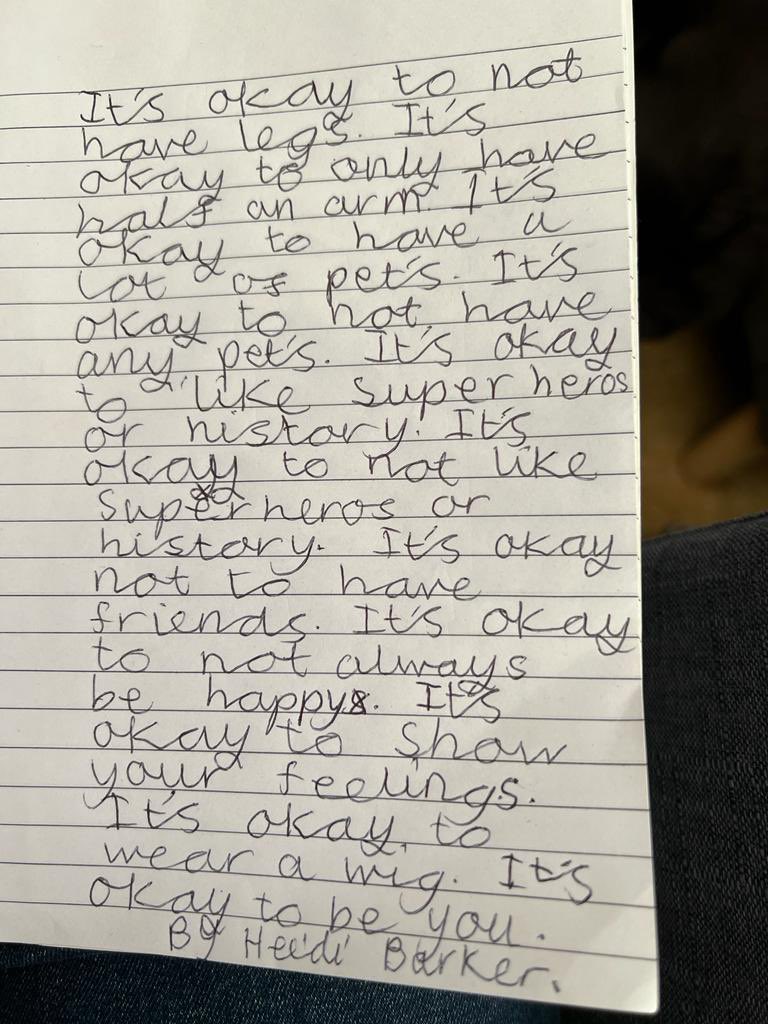 It's okay to not
have legs. It's
okay to only have
half an arm. It's
okay to have a
lot of pet's. It's
okay to not have
any pet's. It's okay
to like super heros
or history. It's
okay to not like
superheros or
history. It's okay
not to have
friends. It's okay
to not always
be happy. It's
okay to show
your feelings.
It's okay to
wear a wig. It's
okay to be you.
By Heidi Barker.